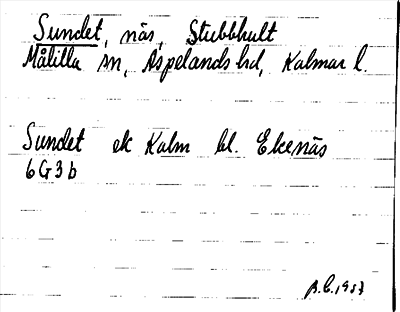 Sundet, näs, Stubbhult
Målilla sn, Aspelands hd, Kalmar l.
Sundet ek Kalm bl. Ekenäs
6G3b